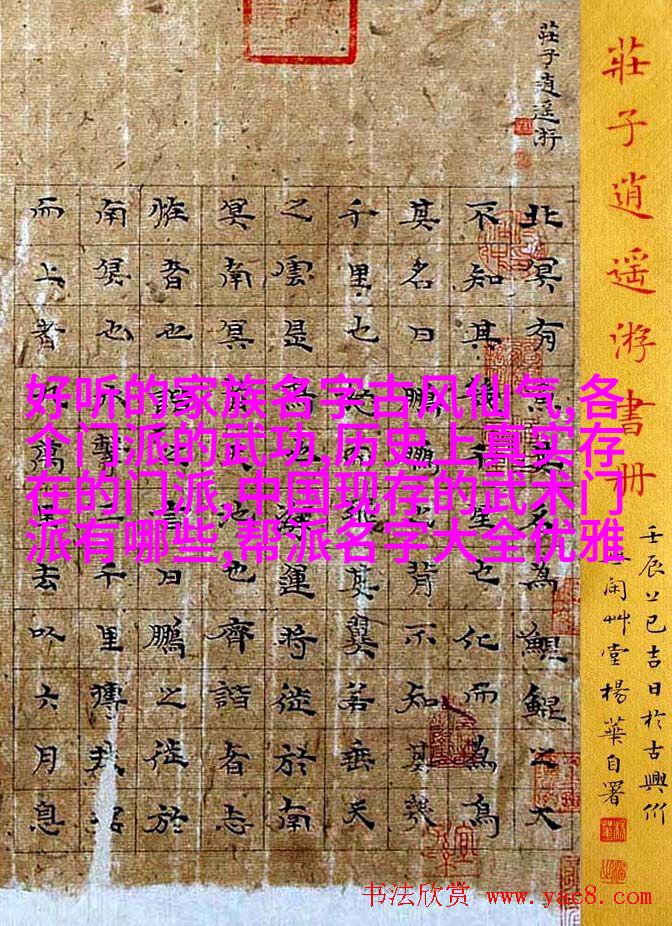 莊子逍遥游書册
壬辰上巳吉日於古興
闲艸堂楊華自署
莊子逍遥游
北冥有魚其名為鯤鯤之大
不知其幾千里也化而為鳥
其名曰鵬鵬之背不知其幾
千里也怒而飛其翼若垂天
之雲是鳥也海運將徙於南
冥南冥者天池也齊諧者志
怪者也諧之言曰鵬之徙於
南冥也水擊三千里摶扶搖
而上者九萬里去以六月息
好听的家族名字古风仙气,各
个门派的武功,历史上真实存
在的门派,中国现存的武术门
派有哪些,帮派名字大全优雅
书法欣赏 www.yac8.com